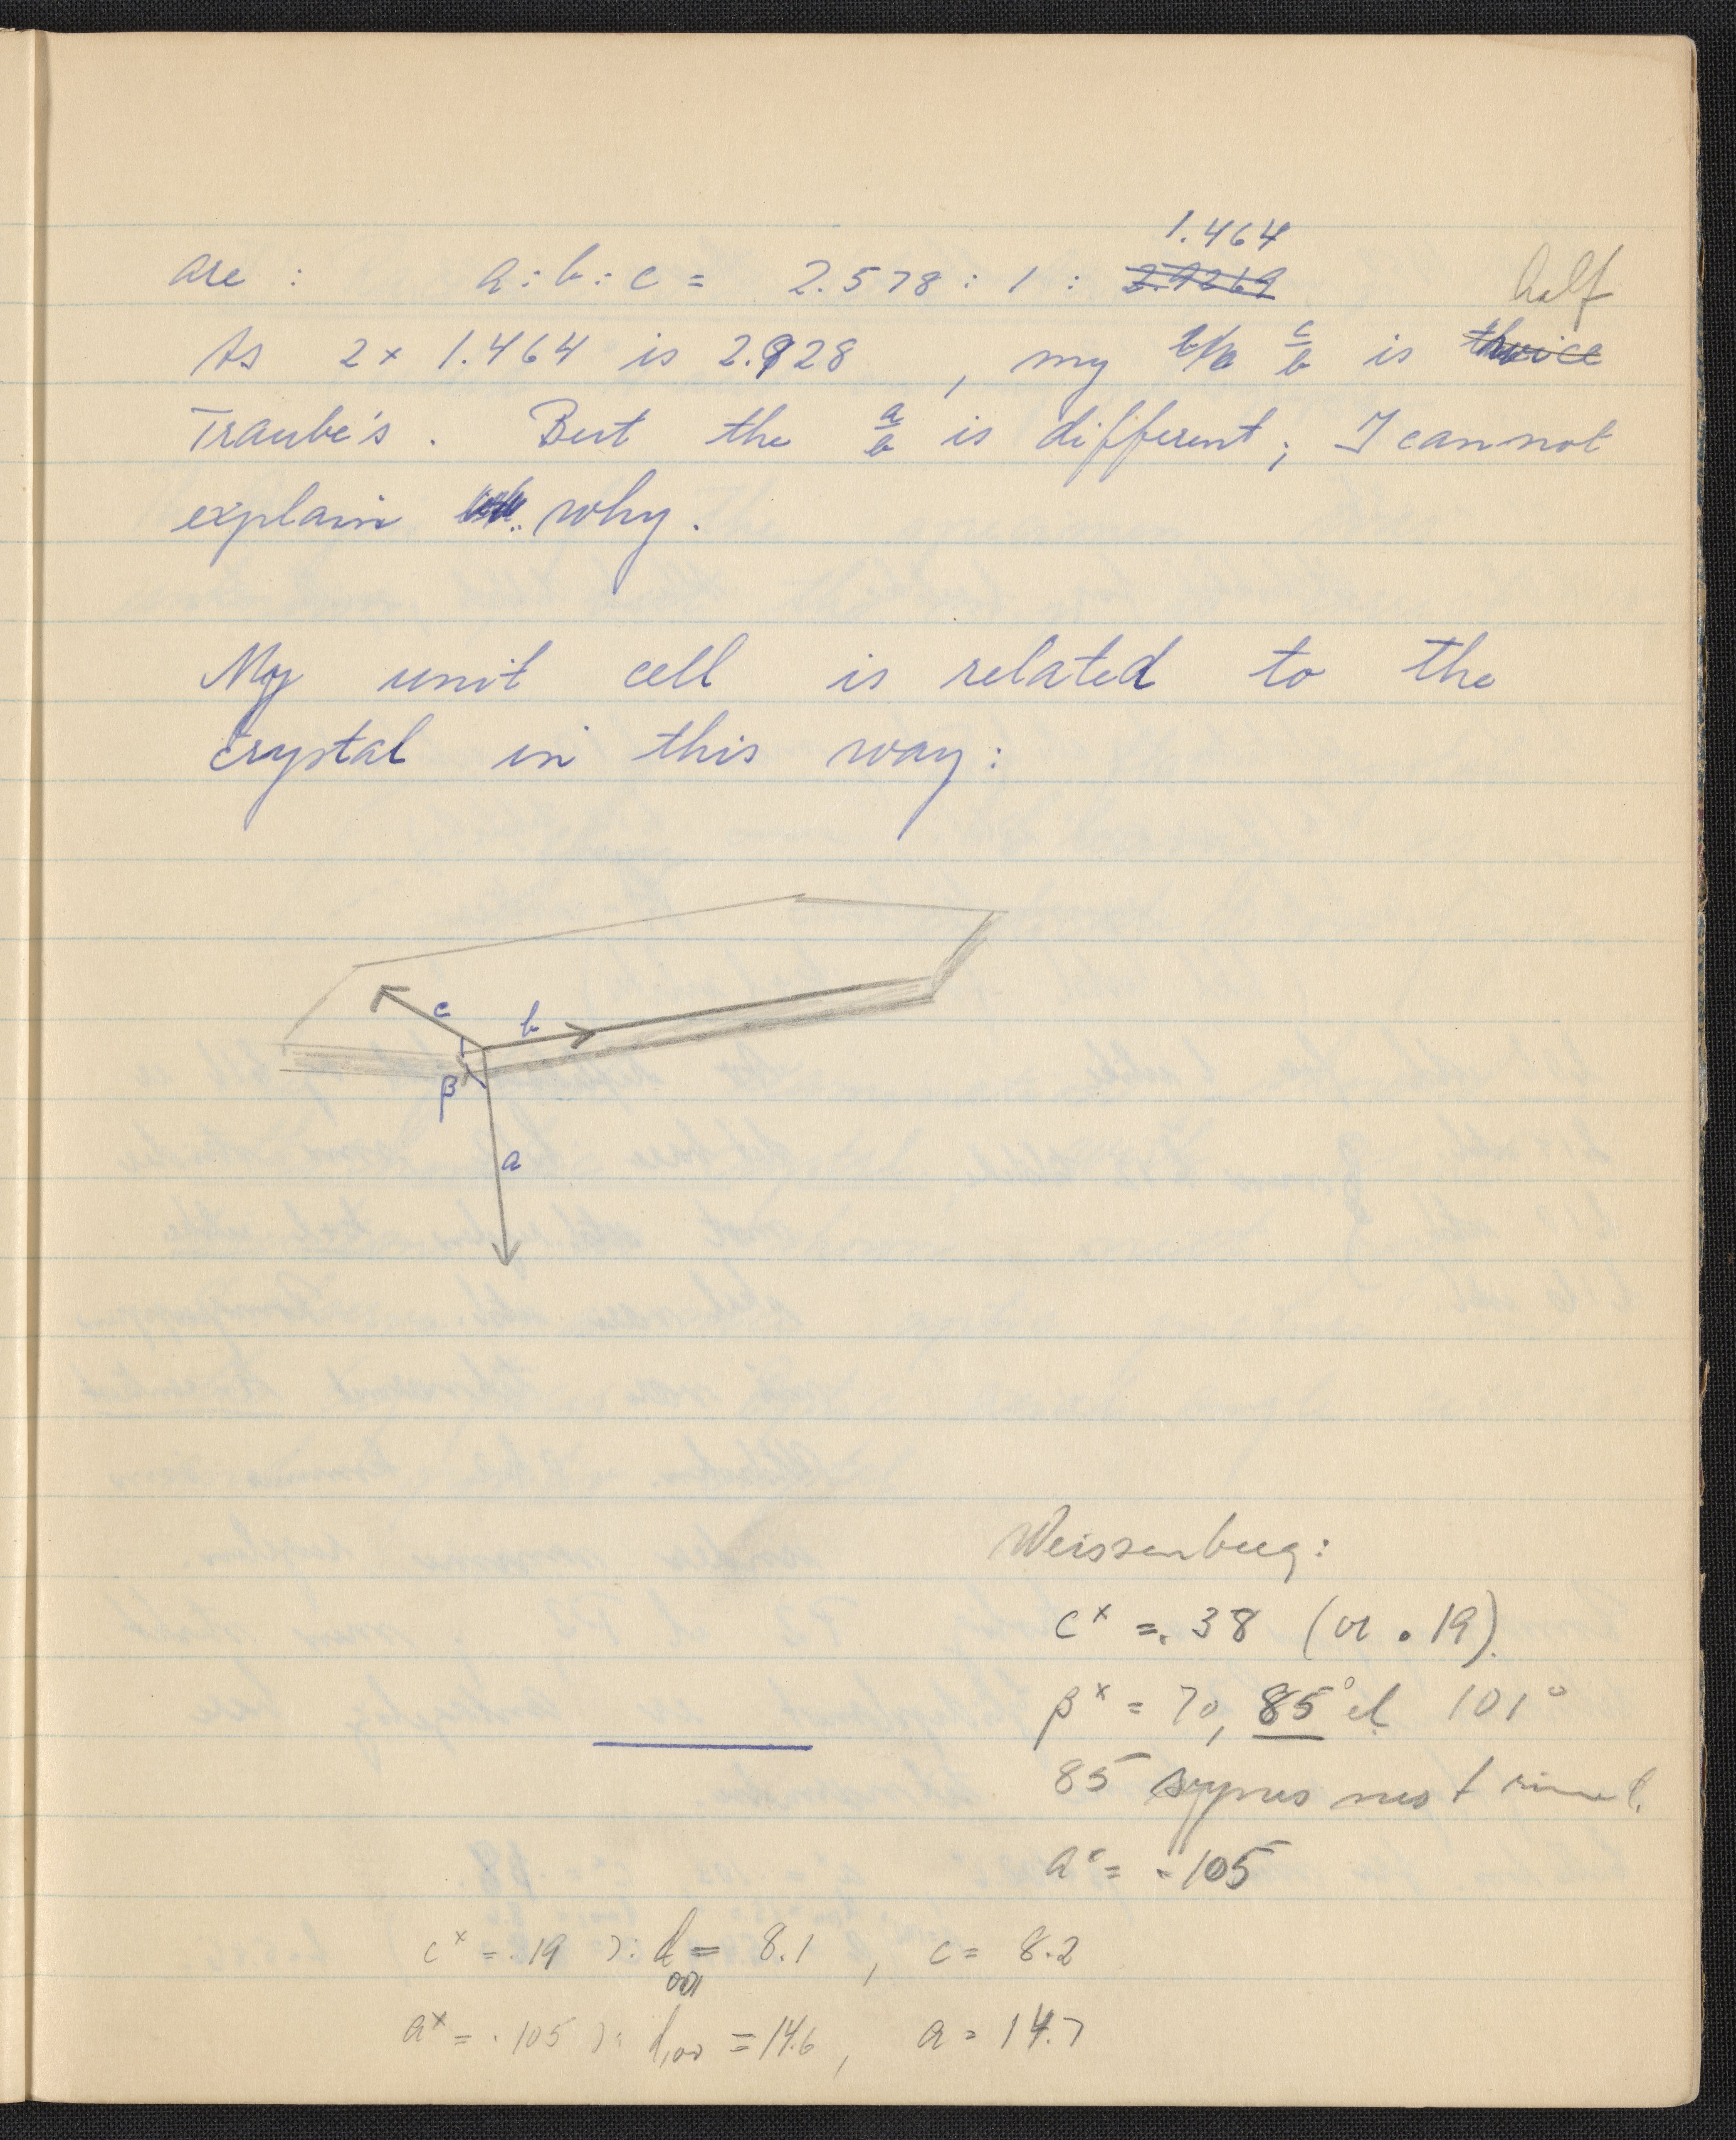 1.464
are : a : b : c = 2.578 : 1 : 2.9269 half
As 2 x 1.464 is 2.928 , my b/a c/b is thwice
Traube's . But the a/b is different ; I cannot
explain why .
My unit cell is related to the
crystal in this way :
c
b
β
a
Weissenberg :
c× = .38 (or .19).
β× = 70, 85° el. 101°
85 synes mest rimel.
a× = .105
c× = .19 ɔ: d001 = 8.1 , c = 8.2
a× = .105 ɔ: d100 = 14.6 , a = 14.7